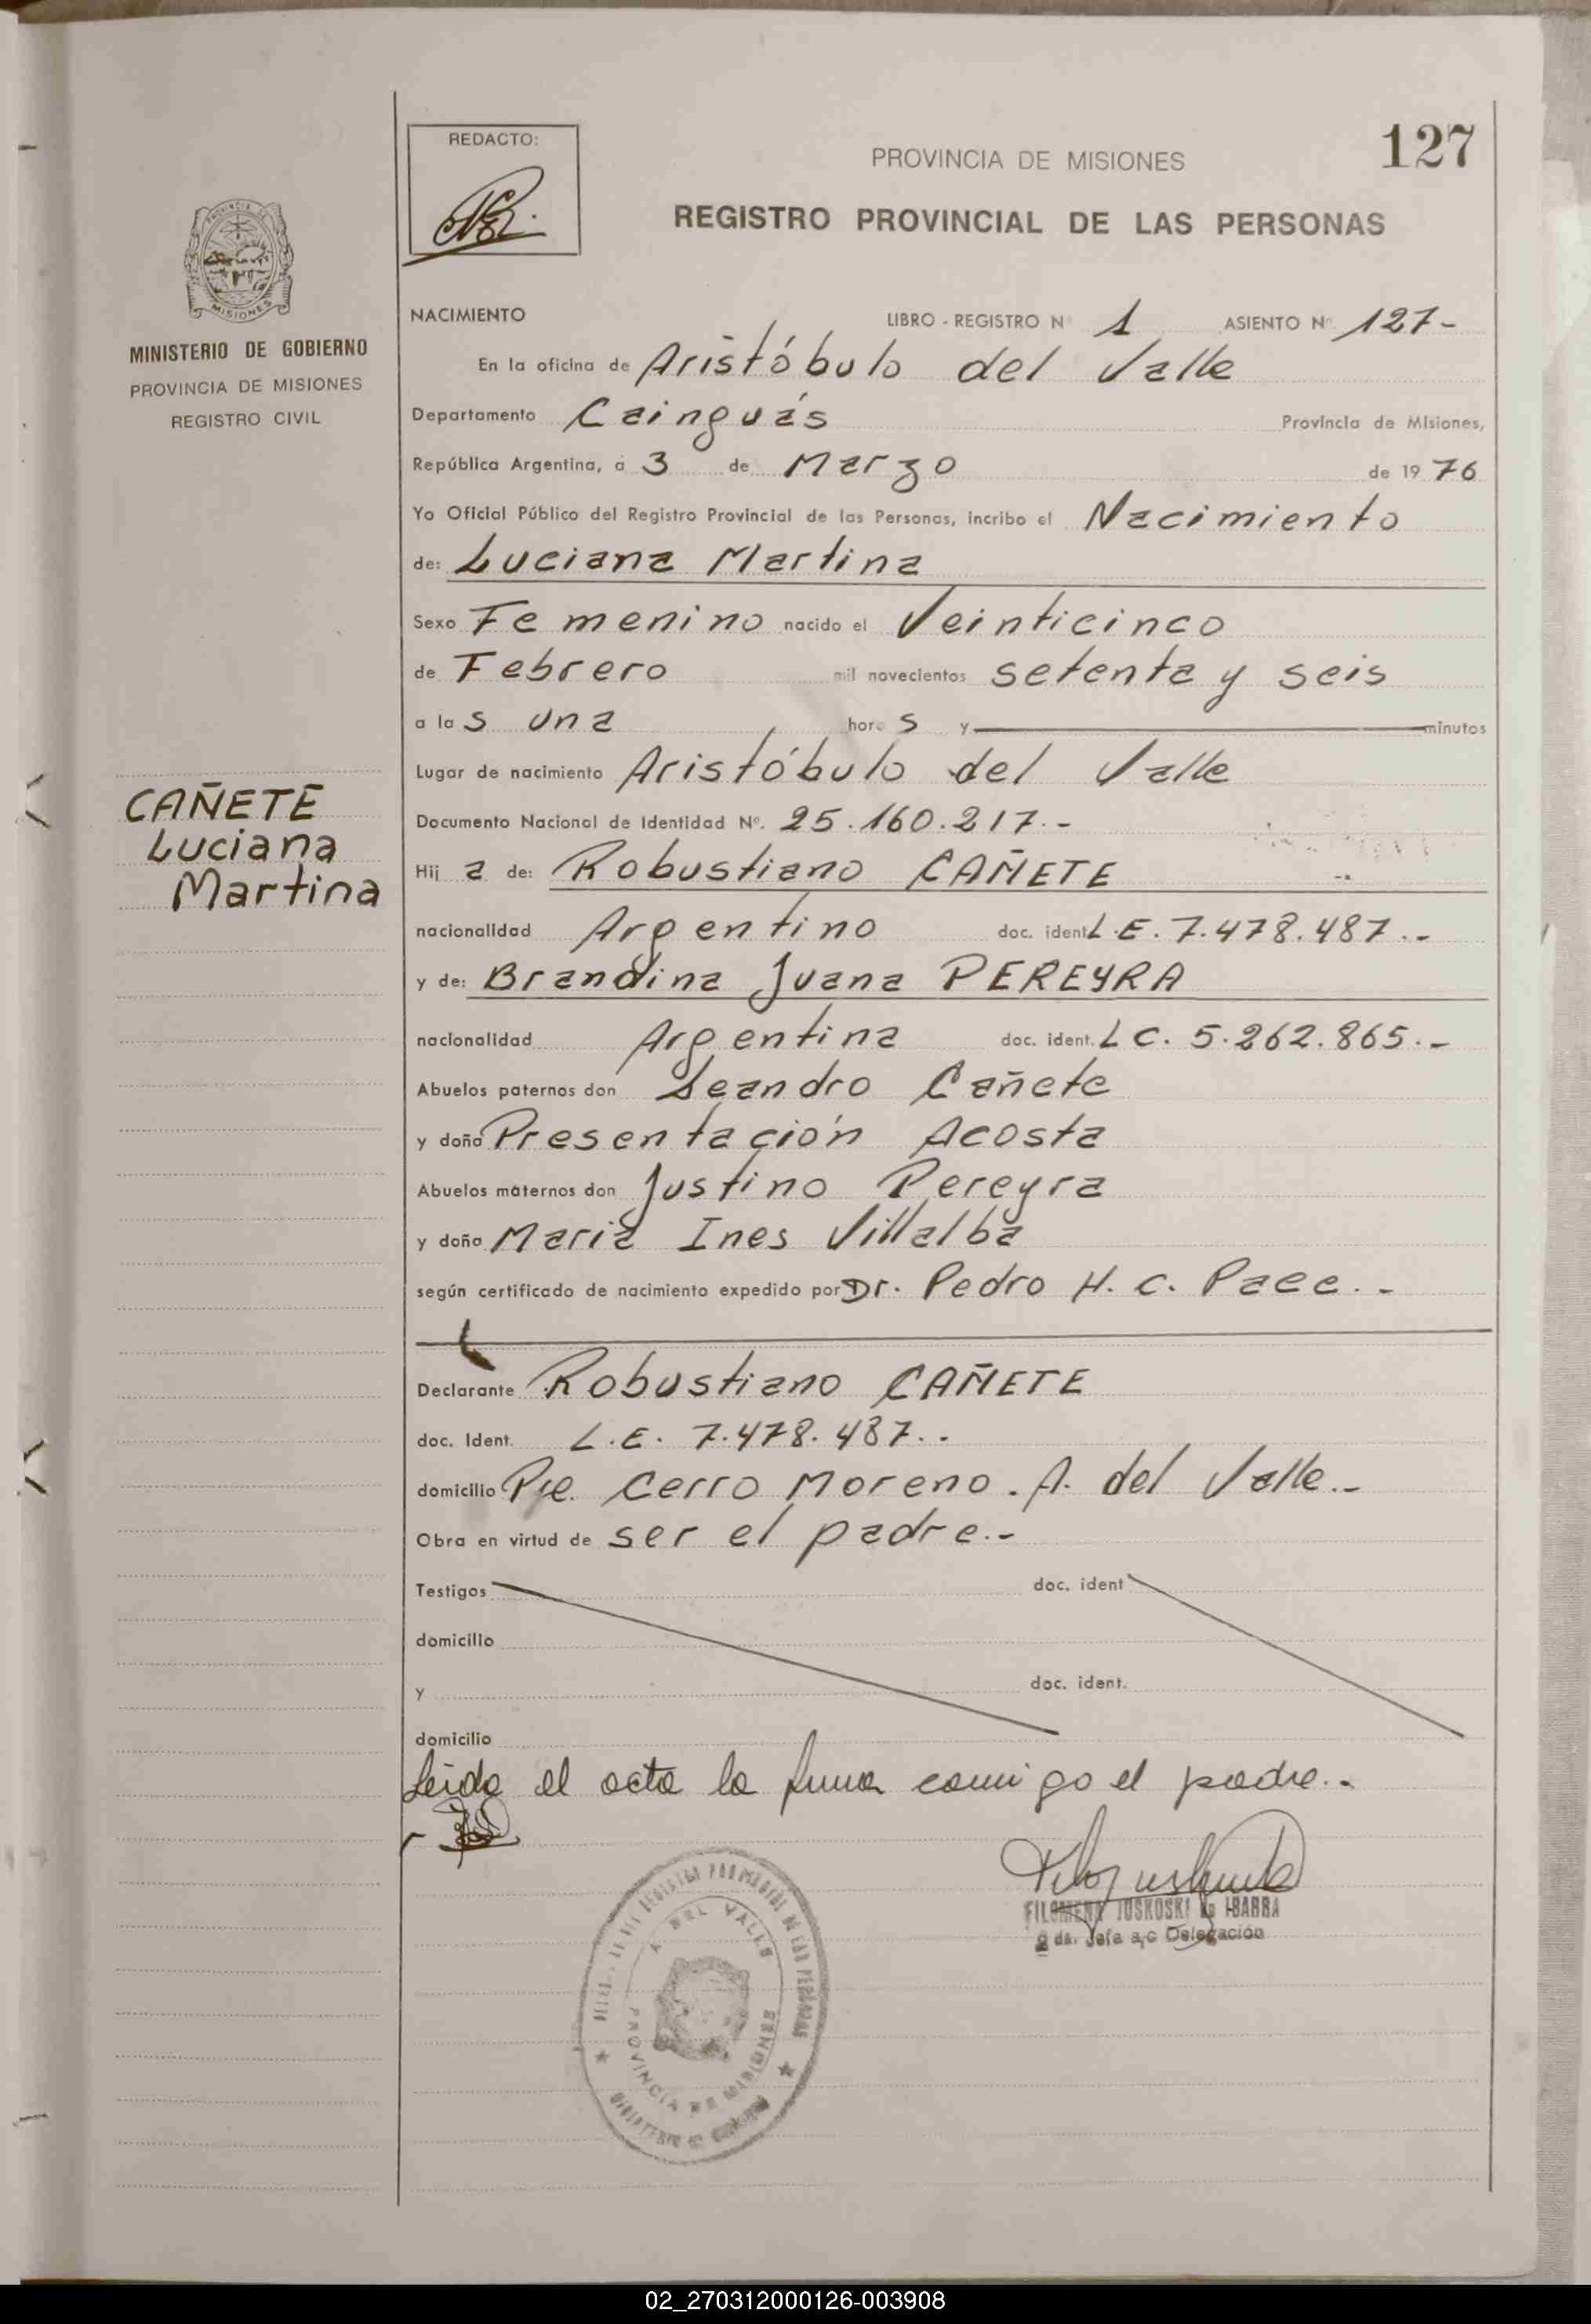 127
REDACTO:
PROVINCIA DE MISIONES
REGISTRO PROVINCIAL DE LAS PERSONAS
MISIONES
MINISTERIO DE GOBIERNO
PROVINCIA DE MISIONES
REGISTRO CIVIL
NACIMIENTO LIBRO - REGISTRO Nº 1 ASIENTO Nº 127-
En la oficina de Aristóbulo del Valle
Departamento Cainguás Provincia de Misiones,
República Argentina, a 3 de Marzo de 1976
Yo Oficial Público del Registro Provincial de las Personas, incribo el Nacimiento
de: Luciana Martina
Sexo Femenino nacido el Veinticinco
de Febrero mil novecientos setenta y seis
a las una horas y minutos
Lugar de nacimiento Aristóbulo del Valle
CAÑETE
Luciana
Martina
Documento Nacional de Identidad Nº. 25.160.217.-
Hij a de: Robustiano CAÑETE
nacionalidad Argentino doc. ident L.E. 7.478.487.-
y de: Brandina Juana PEREYRA
nacionalidad Argentina doc. ident. L C. 5.262.865.-
Abuelos paternos don Leandro Cañete
y doña Presentación Acosta
Abuelos maternos don Justino Pereyra
y doña Maria Ines Villalba
según certificado de nacimiento expedido por Dr. Pedro H. C. Paee.-
Declarante Robustiano CAÑETE
doc. Ident. L.E. 7.478.487..
domicilio Pje. Cerro Moreno. A. del Valle.-
Obra en virtud de ser el padre.-
Testigos doc. ident
domicilio
y doc. ident.
domicilio
Leida el acta la firma conmigo el padre.-
FILOMENA JUSKOSKI de IBARRA
2da. Jefa a/c Delegación
REGISTRO PROVINCIAL DE LAS PERSONAS
A. DEL VALLE
PROVINCIA DE MISIONES
MINISTERIO DE GOBIERNO
02_270312000126-003908